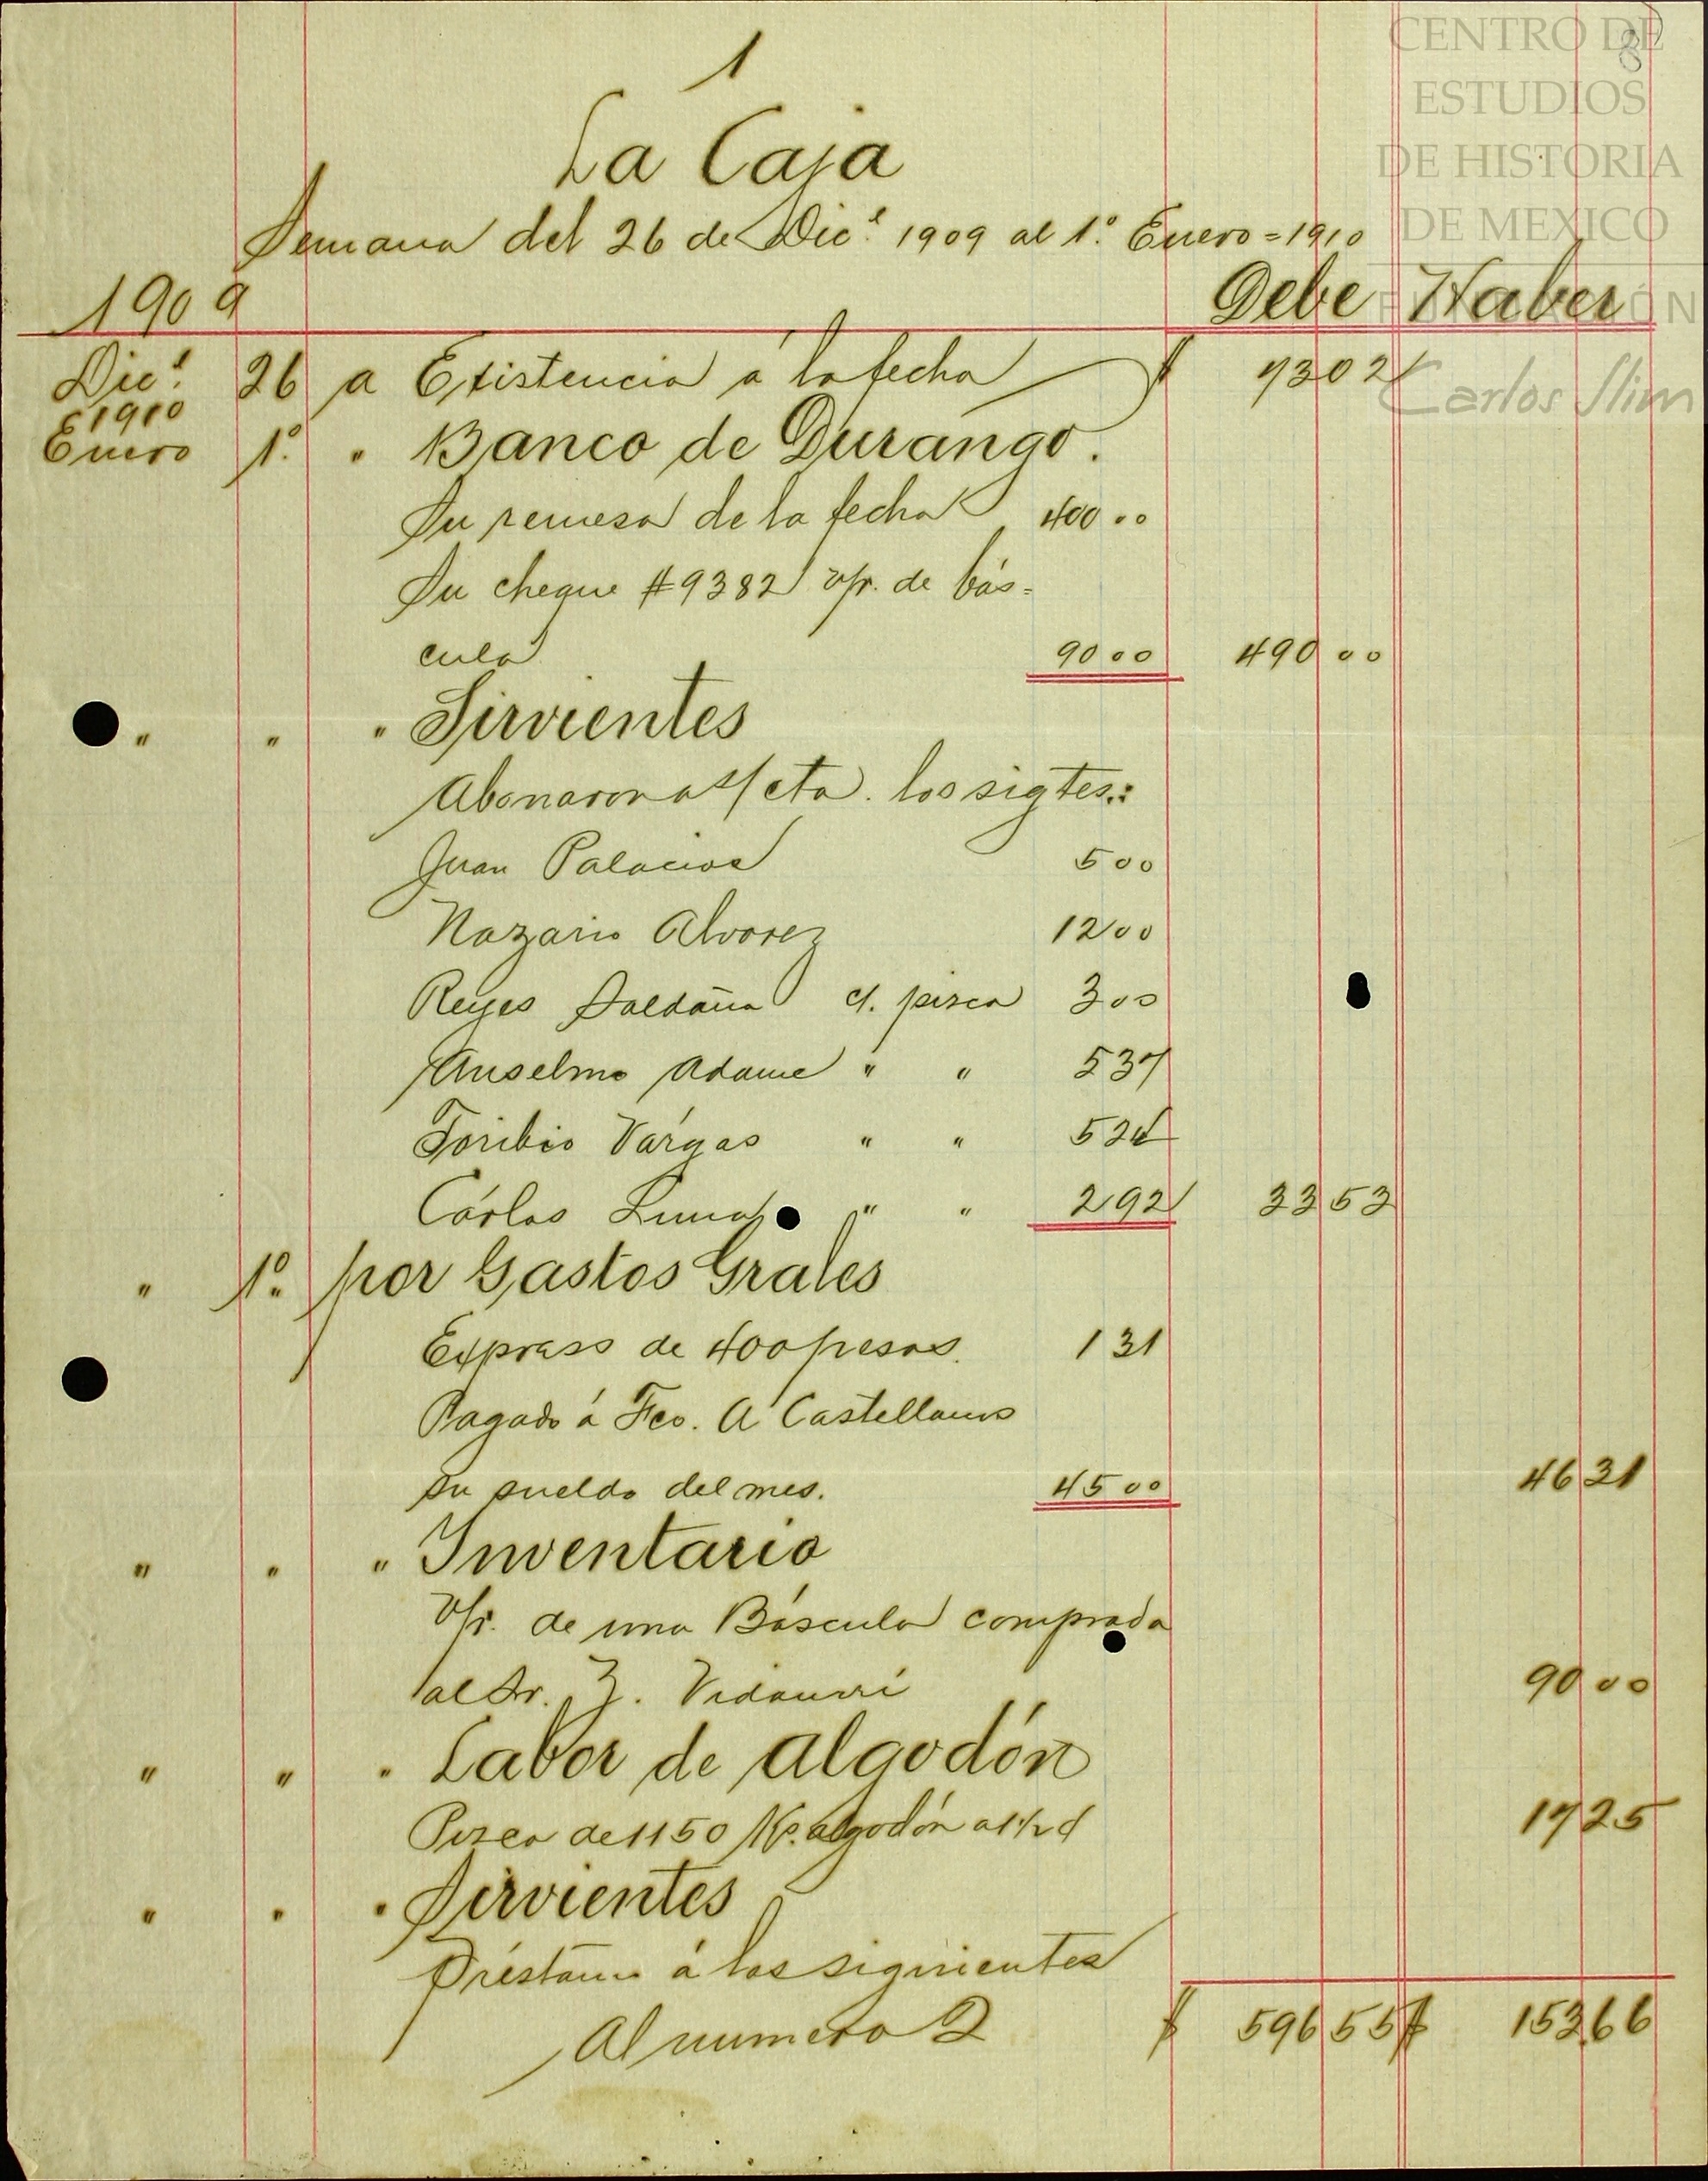 1
La Caja
Semana del 26 de Dic.e 1909 al 1.º Enero = 1910
1909 Debe Haber
Dic.e 26 a Existencia á la fecha $ 7302
1910
Enero 1.º " Banco de Durango.
Su remesa de la fecha 400 00
Su cheque #9382 v/r. de bás=
cula 90 00 490 00
" " " Sirvientes
Abonaron a s/ cta. los sigtes.:
Juan Palacios 5 00
Nazario Alvarez 12 00
Reyes Saldaña c/. pisca 3 00
Anselmo Adame " " 5 37
Toribio Várgas " " 5 24
Cárlos Luna " " 2 92 33 53
" 1.º por Gastos Grales
Express de 400 pesos. 1 31
Pagado á Fco. A Castellanos
su sueldo del mes. 45 00 46 31
" " " Inventario
V/r. de una Báscula comprada
al Sr. Z. Vidaurri 90 00
" " " Labor de Algodón
Pisca de 1150 Ks. algodón a 1½ ¢ 17 25
" " " Sirvientes
Préstamo á los siguientes
Al numero 2 $ 596 55 $ 153 66
CENTRO DE
ESTUDIOS
DE HISTORIA
DE MEXICO
FUNDACIÓN
Carlos Slim